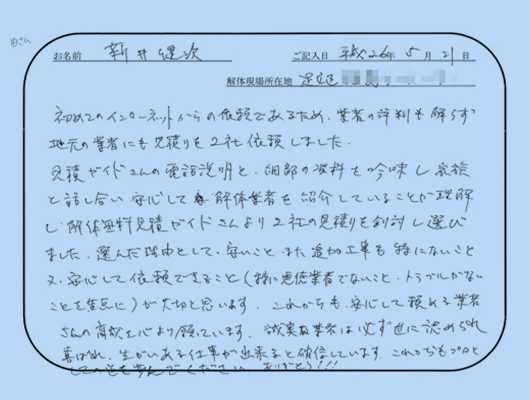 お名前 新井健次 ご記入日 平成26年5月21日
解体現場所在地 足立区
初めてのインターネットからの依頼であるため、業者の評判も解らず
地元の業者にも見積りを2社依頼しました。
見積ガイドさんの電話説明と、細部の資料を吟味し家族
と話し合い安心して解体業者を紹介していることが理解
し解体無料見積ガイドさんより2社の見積りを検討し選び
ました。選んだ理由として、安いこと、また追加工事も特にないこと
又、安心して依頼できること(特に悪徳業者でないこと、トラブルがない
ことを重点に)が大切と思います。これからも、安心して頼める業者
さんの育成を心より願っています。誠実な業者は必ず世に認められ
喜ばれ、生がいある仕事が出来ると確信しています。これからもプロと
しての道を歩んでください。ありがとう!!!